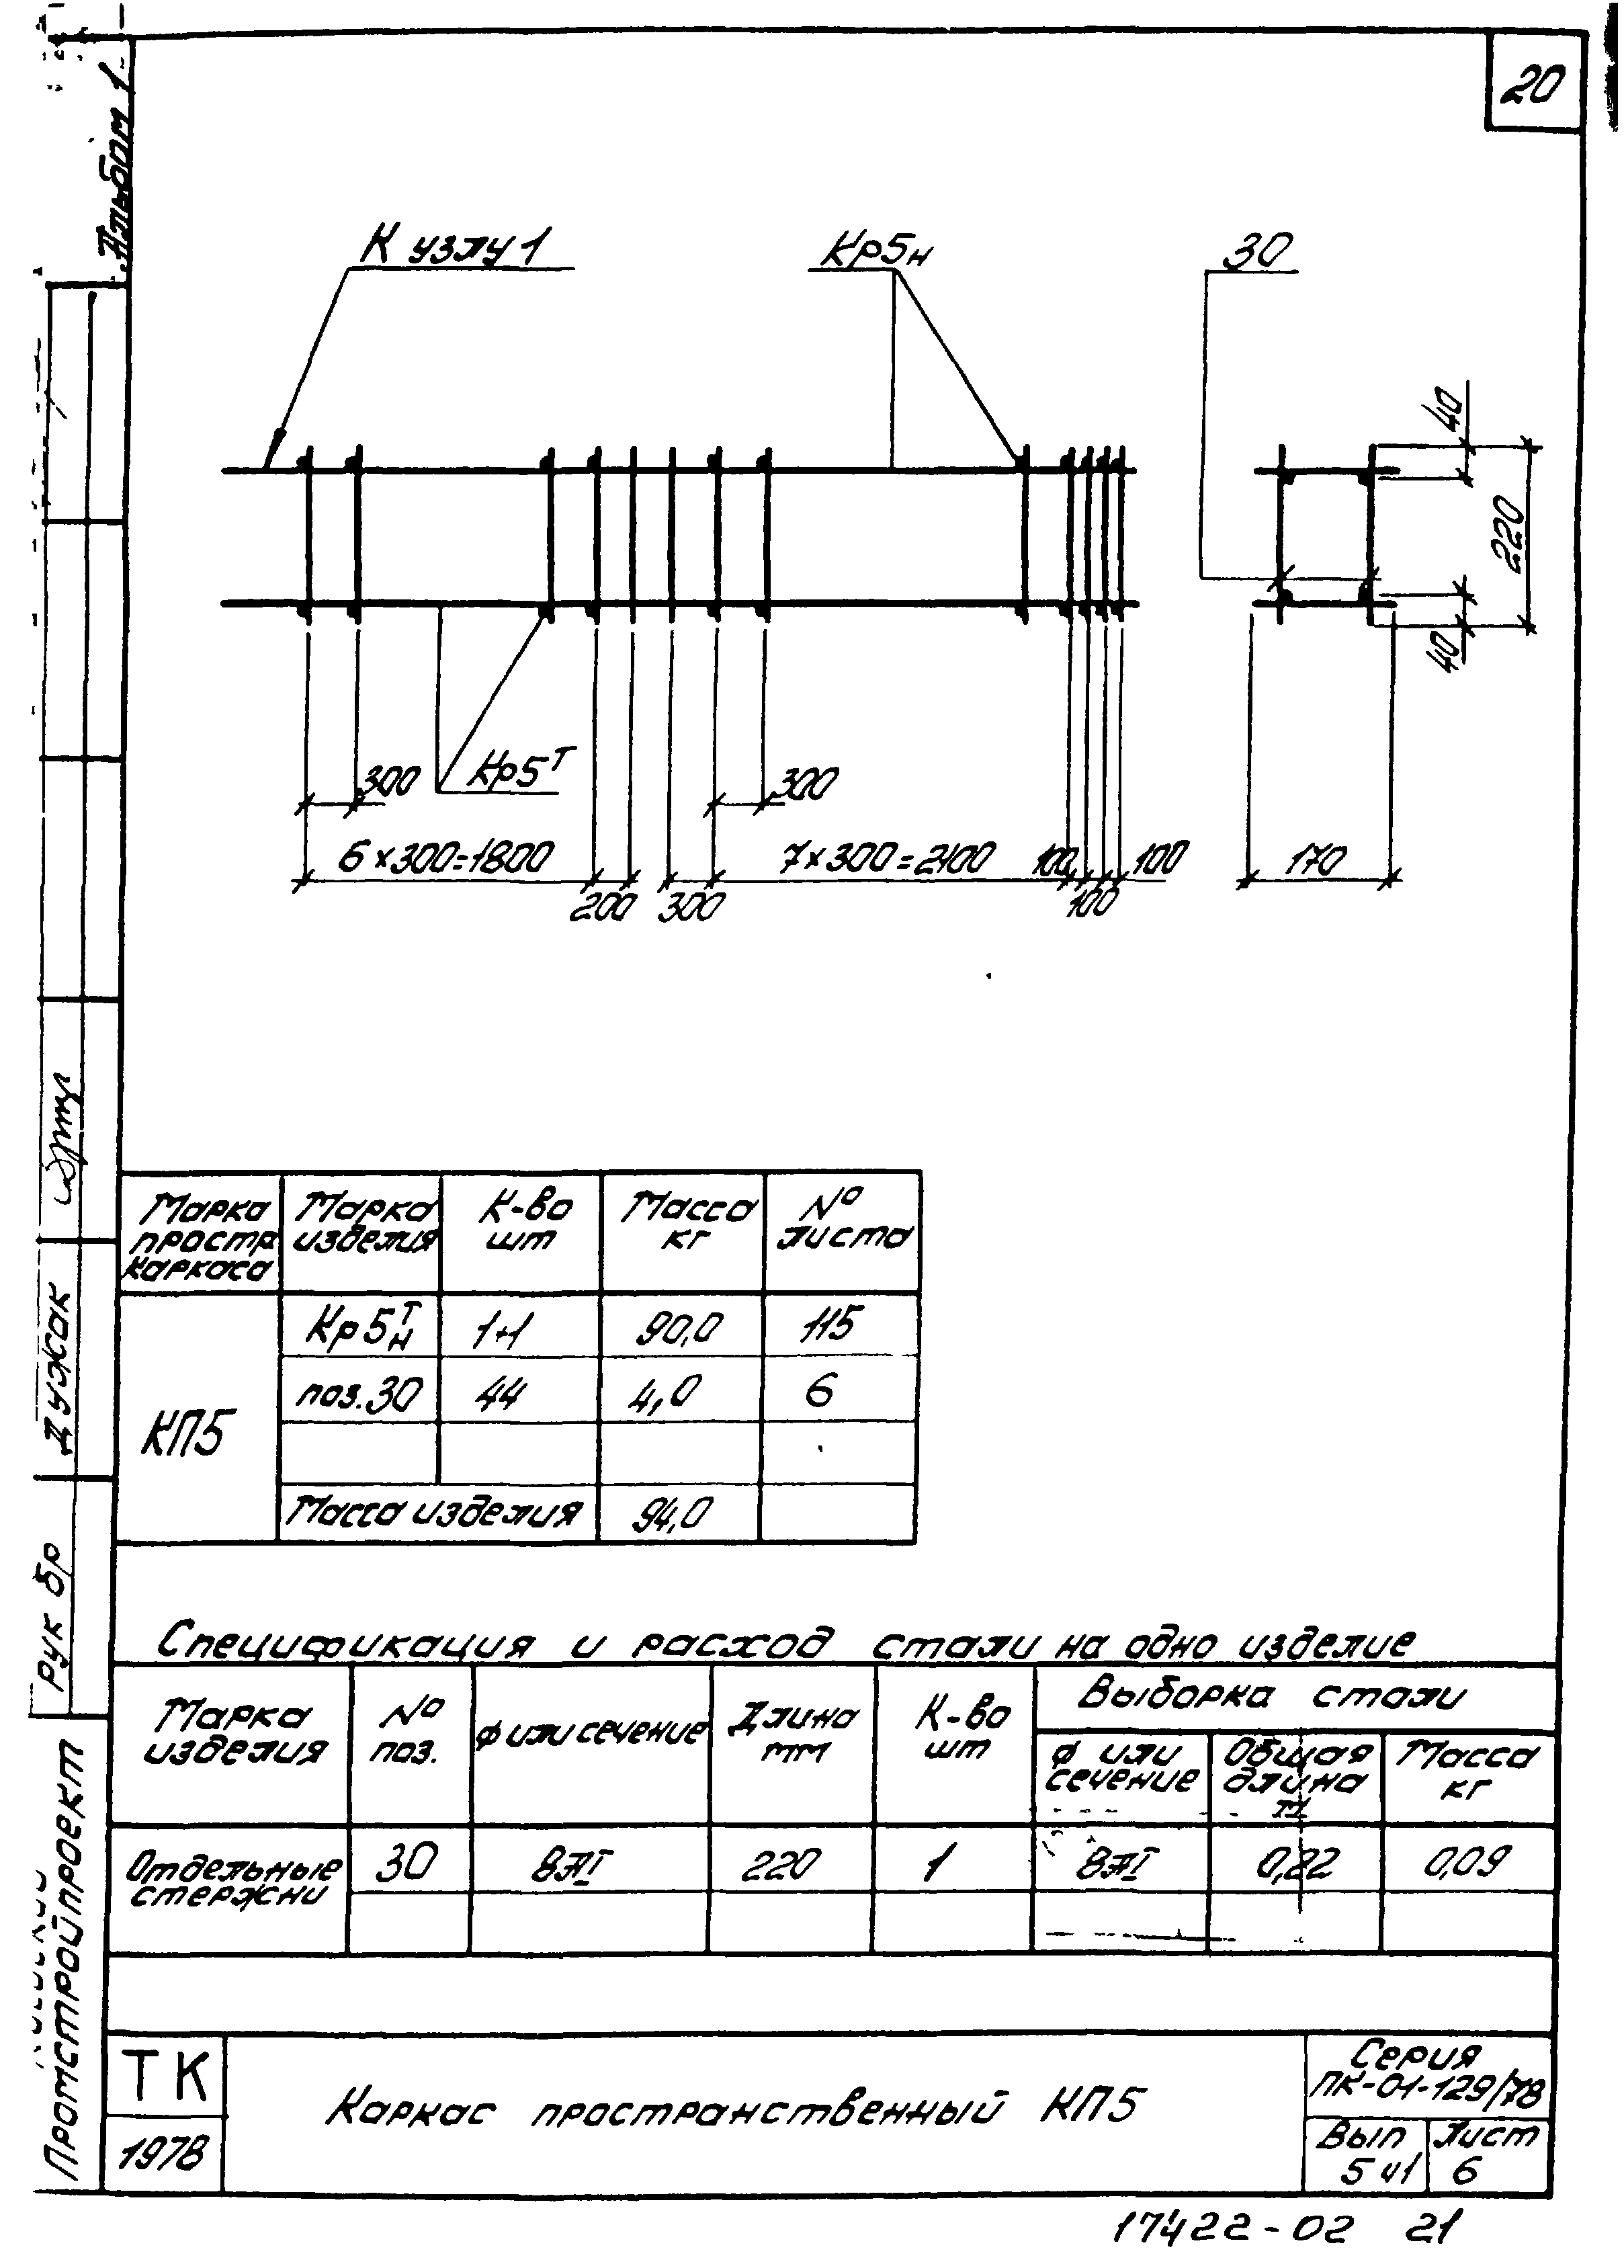 20
Альбом 1
К узлу 1
Кр5н
30
40
220
40
300
Кр5т
300
6×300=1800
7×300=2100
100
100
170
200
300
100
Марка простр каркаса
Марка изделия
К-во шт
Масса кг
№ листа
КП5
Кр5т/н
1+1
90,0
115
поз.30
44
4,0
6
Масса изделия
94,0
Спецификация и расход стали на одно изделие
Марка изделия
№ поз.
ф или сечение
Длина мм
К-во шт
Выборка стали
ф или сечение
Общая длина м
Масса кг
Отдельные стержни
30
8АI
220
1
8АI
0,22
0,09
ТК
1978
Каркас пространственный КП5
Серия
ПК-01-129/78
Вып
5 ч1
Лист
6
Рук бр
Дужак
Промстройпроект
17422-02 21